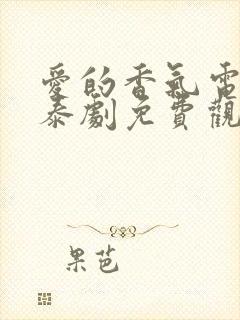 愛的香氣電
泰劇免費觀
果芭